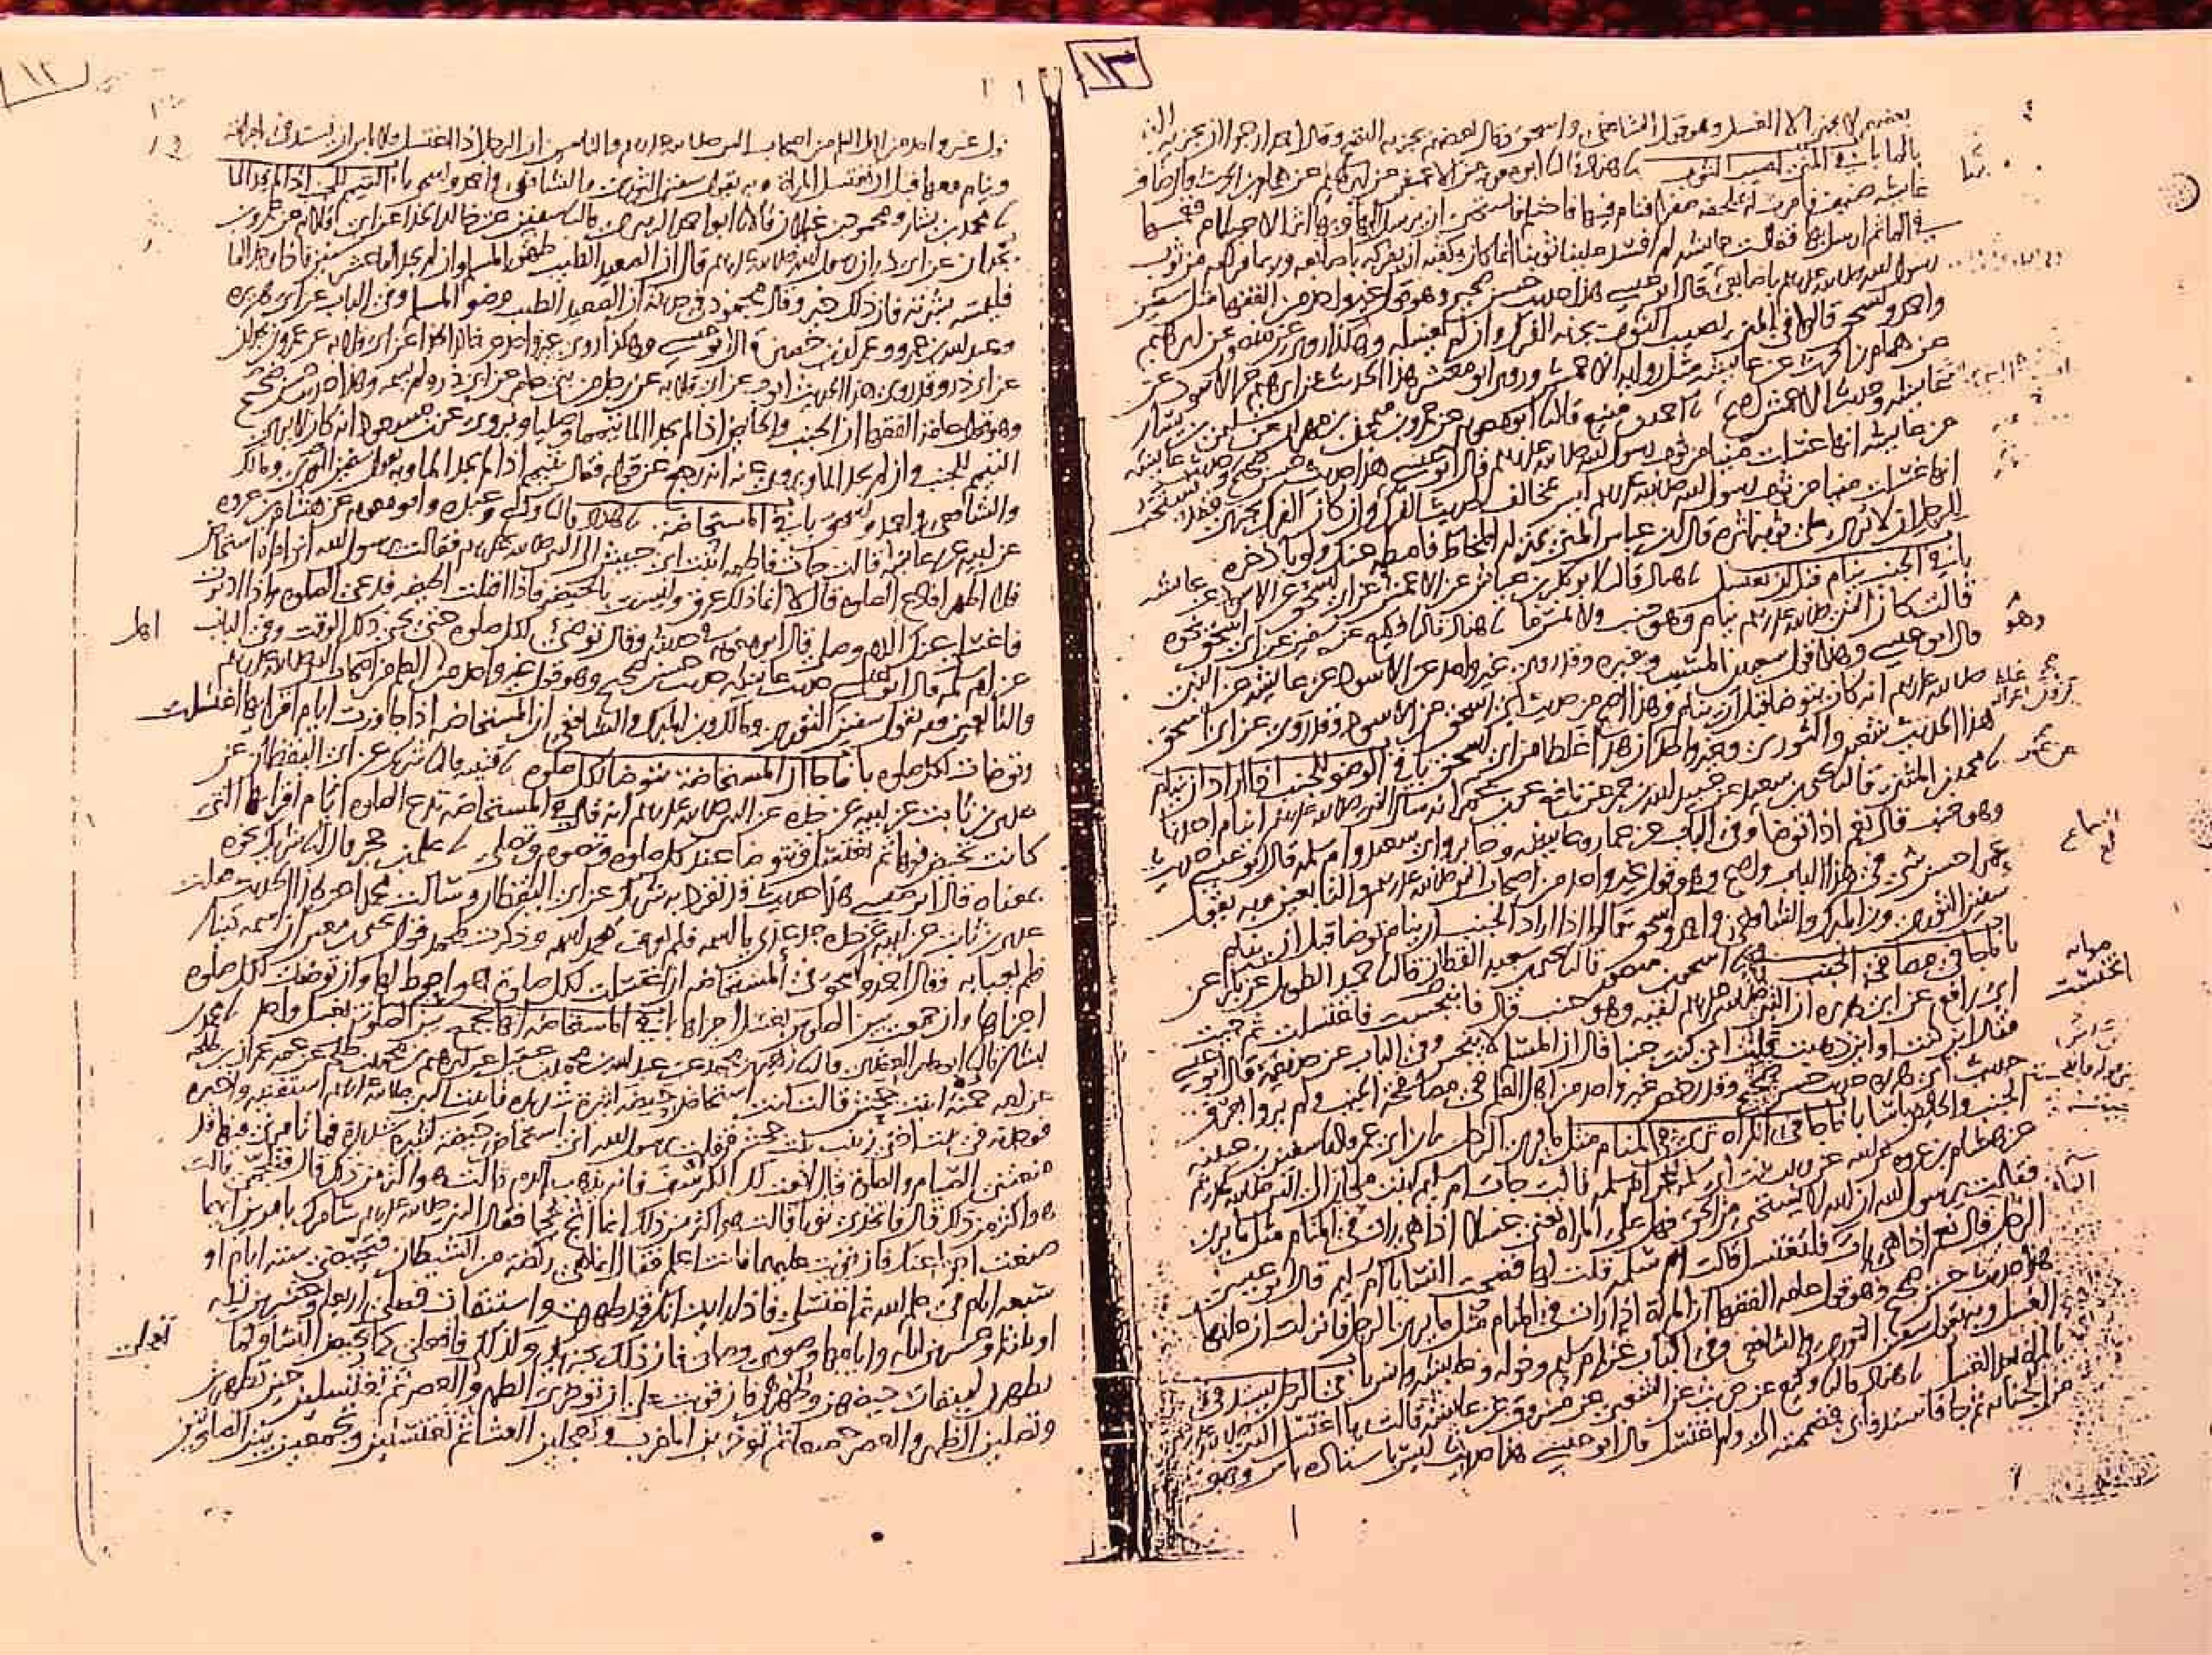 ١٣
بعضهم لا يجزى الا الغسل وهو قول الشافعي واسحق وقال بعضهم يجزيه النضح وقال احمد ارجو ان يجزيه
بالما باب في المني يصيب الثوب هناد قال ابو معوية عن الاعمش عن ابرهيم عن همام بن الحرث قال ضاف
عايشه ضيف فامرت له بملحفه صفرا فنام فيها فاحتلم فاستحى ان يرسل اليها وبها اثر الاحتلام فغمسها
في الما ثم ارسل بها فقالت عايشه لم افسد علينا ثوبنا انما كان يكفيه ان يفركه باصابعه وربما فركته من ثوب
رسول الله صلى الله عليه وسلم باصابعي قال ابو عيسى هذا حديث حسن صحيح وهو قول غير واحد من الفقها مثل سفين
واحمد واسحق قالوا في المني يصيب الثوب يجزيه الفرك وان لم يغسله وهكذا روى عن منصور عن ابرهيم
عن همام بن الحرث عن عايشه مثل رواية الاعمش وروى ابو معشر هذا الحديث عن ابرهيم عن الاسود عن
عايشه وحديث الاعمش اصح احمد بن منيع قال ابو معوية عن عمرو بن ميمون بن مهران عن سليمن بن يسار
عن عايشه انها غسلت منيا من ثوب رسول الله صلى الله عليه وسلم قال ابو عيسى هذا حديث حسن صحيح وحديث عايشه
انها غسلت منيا من ثوب رسول الله صلى الله عليه وسلم ليس بمخالف لحديث الفرك وان كان الفرك يجزى فقد يستحب
للرجل ان لا يرى على ثوبه اثره قال ابن عباس المني بمنزلة المخاط فامطه عنك ولو باذخره
باب في الجنب ينام قبل ان يغتسل هناد قال ابو بكر بن عياش عن الاعمش عن ابي اسحق عن الاسود عن عايشه
قالت كان النبي صلى الله عليه وسلم ينام وهو جنب ولا يمس ما هناد قال وكيع عن سفين عن ابي اسحق نحوه
وهو
قال ابو عيسى وهذا قول سعيد بن المسيب وغيره وقد روى غير واحد عن الاسود عن عايشه عن النبي
صلى الله عليه وسلم انه كان يتوضا قبل ان ينام وهذا اصح من حديث ابي اسحق عن الاسود وقد روى عن ابي اسحق
هذا الحديث شعبه والثوري وغير واحد ان هذا غلط من ابي اسحق باب في الوضو للجنب اذا اراد ان ينام
محمد بن المثنى قال يحيى بن سعيد عن عبيد الله بن عمر عن نافع عن ابن عمر عن عمر انه سال النبي صلى الله عليه وسلم اينام احدنا
وهو جنب قال نعم اذا توضا وفي الباب عن عمار وعايشه وجابر وابي سعيد وام سلمه قال ابو عيسى حديث
عمر احسن شي في هذا الباب واصح وهو قول غير واحد من اصحاب النبي صلى الله عليه وسلم والتابعين وبه يقول
سفين الثوري وابن المبرك والشافعي واحمد واسحق قالوا اذا اراد الجنب ان ينام توضا قبل ان ينام
باب ما جا في مصافحة الجنب اسحق بن منصور قال يحيى بن سعيد القطان قال حميد الطويل عن بكر عن
ابي رافع عن ابي هريره ان النبي صلى الله عليه وسلم لقيه وهو جنب قال فانبجست فاغتسلت ثم جيت
فقال اين كنت او اين ذهبت قلت اني كنت جنبا قال ان المسلم لا ينجس وفي الباب عن حذيفة قال ابو عيسى
حديث ابي هريره حديث حسن صحيح وقد رخص غير واحد من اهل العلم في مصافحة الجنب ولم يروا بعرق
الجنب والحايض باسا باب ما جا في المراه ترى في المنام مثل ما يرى الرجل ابن ابي عمر قال سفين بن عيينه
عن هشام بن عروه عن ابيه عن زينب بنت ابي سلمه عن ام سلمه قالت جات ام سليم ابنت ملحان الى النبي صلى الله عليه وسلم
فقالت يرسول الله ان الله لا يستحيى من الحق فهل على المراه تعني غسلا اذا هي رات في المنام مثل ما يرى
الرجل قال نعم اذا هي رات فلتغتسل قالت ام سلمه قلت لها فضحت النسا يا ام سليم قال ابو عيسى
هذا حديث حسن صحيح وهو قول عامة الفقها ان المراة اذا رات في المنام مثل ما يرى الرجل فانزلت ان عليها
الغسل وبه يقول سفين الثوري والشافعي وفي الباب عن ام سليم وخوله وعايشه وانس باب في الرجل يستدفي
بالمراه بعد الغسل هناد قال وكيع عن حريث عن الشعبي عن مسروق عن عايشه قالت ربما اغتسل النبي صلى الله عليه وسلم
من الجنابه ثم جا فاستدفا بي فضممته الي ولم اغتسل قال ابو عيسى هذا حديث ليس باسناده باس وهو
١٢
قول غير واحد من اهل العلم من اصحاب النبي صلى الله عليه وسلم والتابعين ان الرجل اذا اغتسل فلا باس ان يستدفي بامراته
وينام معها قبل ان تغتسل المراة وبه يقول سفين الثوري والشافعي واحمد واسحق باب التيمم للجنب اذا لم يجد الما
محمد بن بشار ومحمود بن غيلان قالا ابو احمد الزبيري قال سفين عن خالد الحذا عن ابي قلابه عن عمرو بن
بجدان عن ابي ذر ان رسول الله صلى الله عليه وسلم قال ان الصعيد الطيب طهور المسلم وان لم يجد الما عشر سنين فاذا وجد الما
فليمسه بشرته فان ذلك خير وقال محمود في حديثه ان الصعيد الطيب وضو المسلم وفي الباب عن ابي هريره
وعبد الله بن عمرو وعمران بن حصين قال ابو عيسى وهكذا روى غير واحد عن خالد الحذا عن ابي قلابه عن عمرو بن بجدان
عن ابي ذر وقد روى هذا الحديث ايوب عن ابي قلابه عن رجل من بني عامر عن ابي ذر ولم يسمه وهذا حديث حسن صحيح
وهو قول عامة الفقها ان الجنب والحايض اذا لم يجدا الما تيمما وصليا ويروى عن ابن مسعود انه كان لا يرى
التيمم للجنب وان لم يجد الما ويروى عنه انه رجع عن قوله فقال يتيمم اذا لم يجد الما وبه يقول سفين الثوري ومالك
والشافعي واحمد واسحق باب في المستحاضه هناد قال وكيع وعبده وابو معوية عن هشام بن عروه
عن ابيه عن عايشه قالت جات فاطمه ابنت ابي حبيش الى النبي صلى الله عليه وسلم فقالت يرسول الله اني امراه استحاض
فلا اطهر افادع الصلوه قال لا انما ذلك عرق وليست بالحيضه فاذا اقبلت الحيضه فدعي الصلوه واذا ادبرت
فاغسلي عنك الدم وصلي قال ابو معوية في حديثه وقال توضئي لكل صلوه حتى يجي ذلك الوقت وفي الباب
عن ام سلمه قال ابو عيسى حديث عايشه حديث حسن صحيح وهو قول غير واحد من اهل العلم من اصحاب النبي صلى الله عليه وسلم
والتابعين وبه يقول سفين الثوري ومالك وابن المبرك والشافعي ان المستحاضه اذا جاوزت ايام اقرائها اغتسلت
وتوضات لكل صلوه باب ما جا ان المستحاضة تتوضا لكل صلوه قتيبه قال شريك عن ابي اليقظان عن
عدي بن ثابت عن ابيه عن جده عن النبي صلى الله عليه وسلم انه قال في المستحاضه تدع الصلوه ايام اقرائها التي
كانت تحيض فيها ثم تغتسل وتتوضا عند كل صلوه وتصوم وتصلي علي بن حجر قال شريك نحوه
بمعناه قال ابو عيسى هذا حديث قد تفرد به شريك عن ابي اليقظان وسالت محمدا عن هذا الحديث فقلت
عدي بن ثابت عن ابيه عن جده جد عدي ما اسمه فلم يعرف محمد اسمه وذكرت لمحمد قول يحيى بن معين ان اسمه دينار
فلم يعبا به وقال احمد واسحق في المستحاضه ان اغتسلت لكل صلوة هو احوط لها وان توضات لكل صلوه
اجزاها وان جمعت بين الصلوتين بغسل اجزاها باب في المستحاضه انها تجمع بين الصلوتين بغسل واحد محمد بن
بشار قال ابو عامر العقدي قال زهير بن محمد عن عبد الله بن محمد بن عقيل عن ابرهيم بن محمد بن طلحه عن عمه عمران بن طلحه
عن امه حمنه ابنت جحش قالت كنت استحاض حيضه كثيرة شديده فاتيت النبي صلى الله عليه وسلم استفتيه واخبره
فوجدته في بيت اختي زينب بنت جحش فقلت يرسول الله اني استحاض حيضه كثيره شديده فما تامرني فيها قد
منعتني الصيام والصلوة قال انعت لك الكرسف فانه يذهب الدم قالت هو اكثر من ذلك قال فتلجمي قالت
هو اكثر من ذلك قال فاتخذي ثوبا قالت هو اكثر من ذلك انما اثج ثجا فقال النبي صلى الله عليه وسلم سامرك بامرين ايهما
صنعت اجزا عنك فان قويت عليهما فانت اعلم فقال انما هي ركضة من الشيطان فتحيضي سته ايام او
سبعه ايام في علم الله ثم اغتسلي فاذا رايت انك قد طهرت واستنقات فصلي اربعا وعشرين ليله
او ثلاثا وعشرين ليله وايامها وصومي وصلي فان ذلك يجزيك وكذلك فافعلي كما تحيض النسا وكما
يطهرن لميقات حيضهن وطهرهن فان قويت على ان توخري الظهر وتعجلي العصر ثم تغتسلين حين تطهرين
وتصلين الظهر والعصر جميعا ثم توخرين المغرب وتعجلين العشا ثم تغتسلين وتجمعين بين الصلوتين